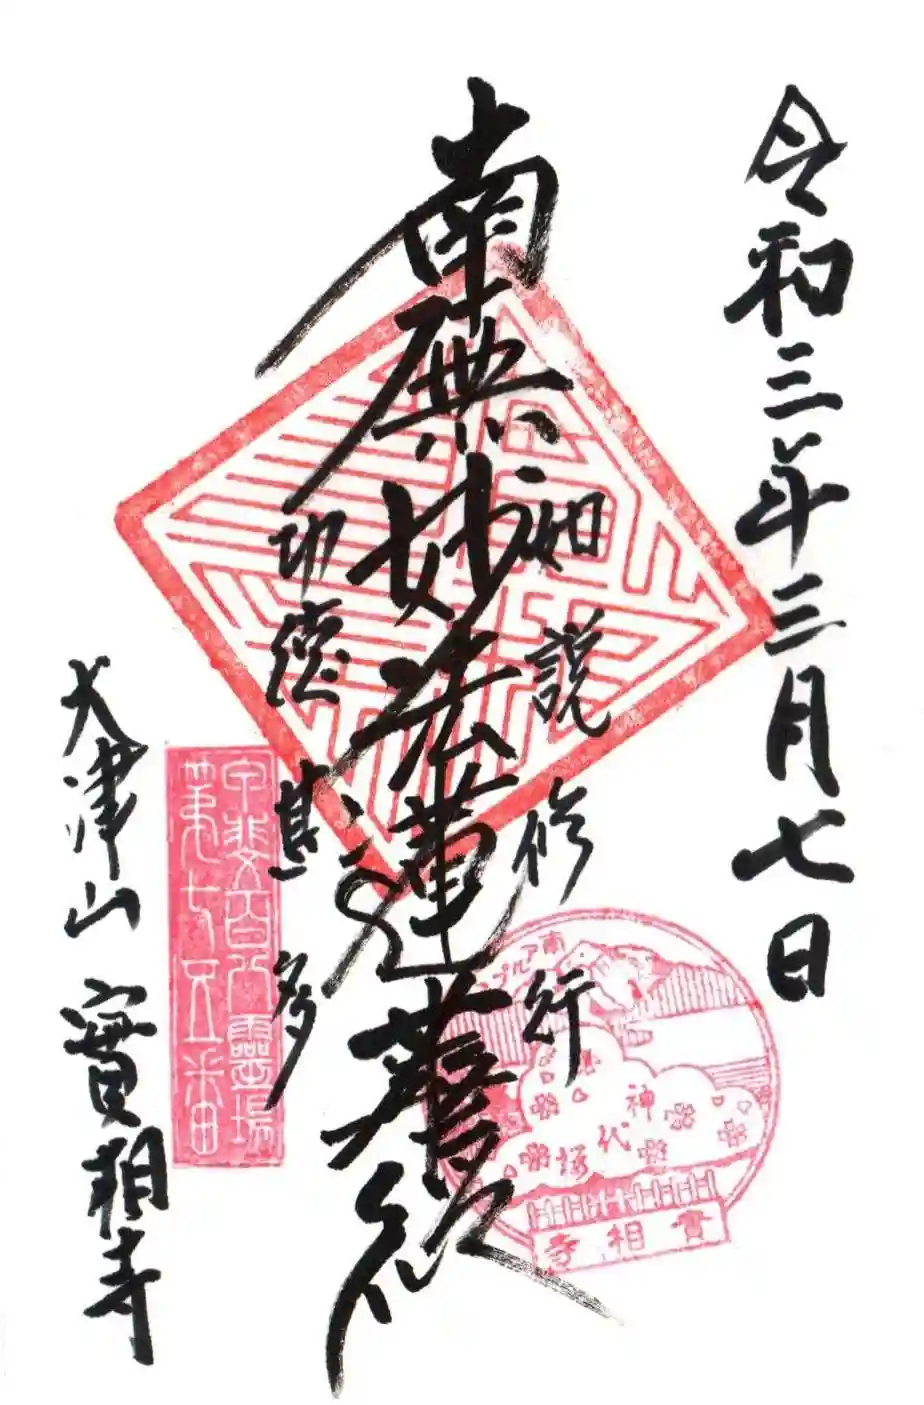 令和三年三月七日
如説修行
南無妙法蓮華経
功徳甚多
大津山 實相寺
甲斐百八霊場
第七五番
南アルプス
神代桜
實相寺